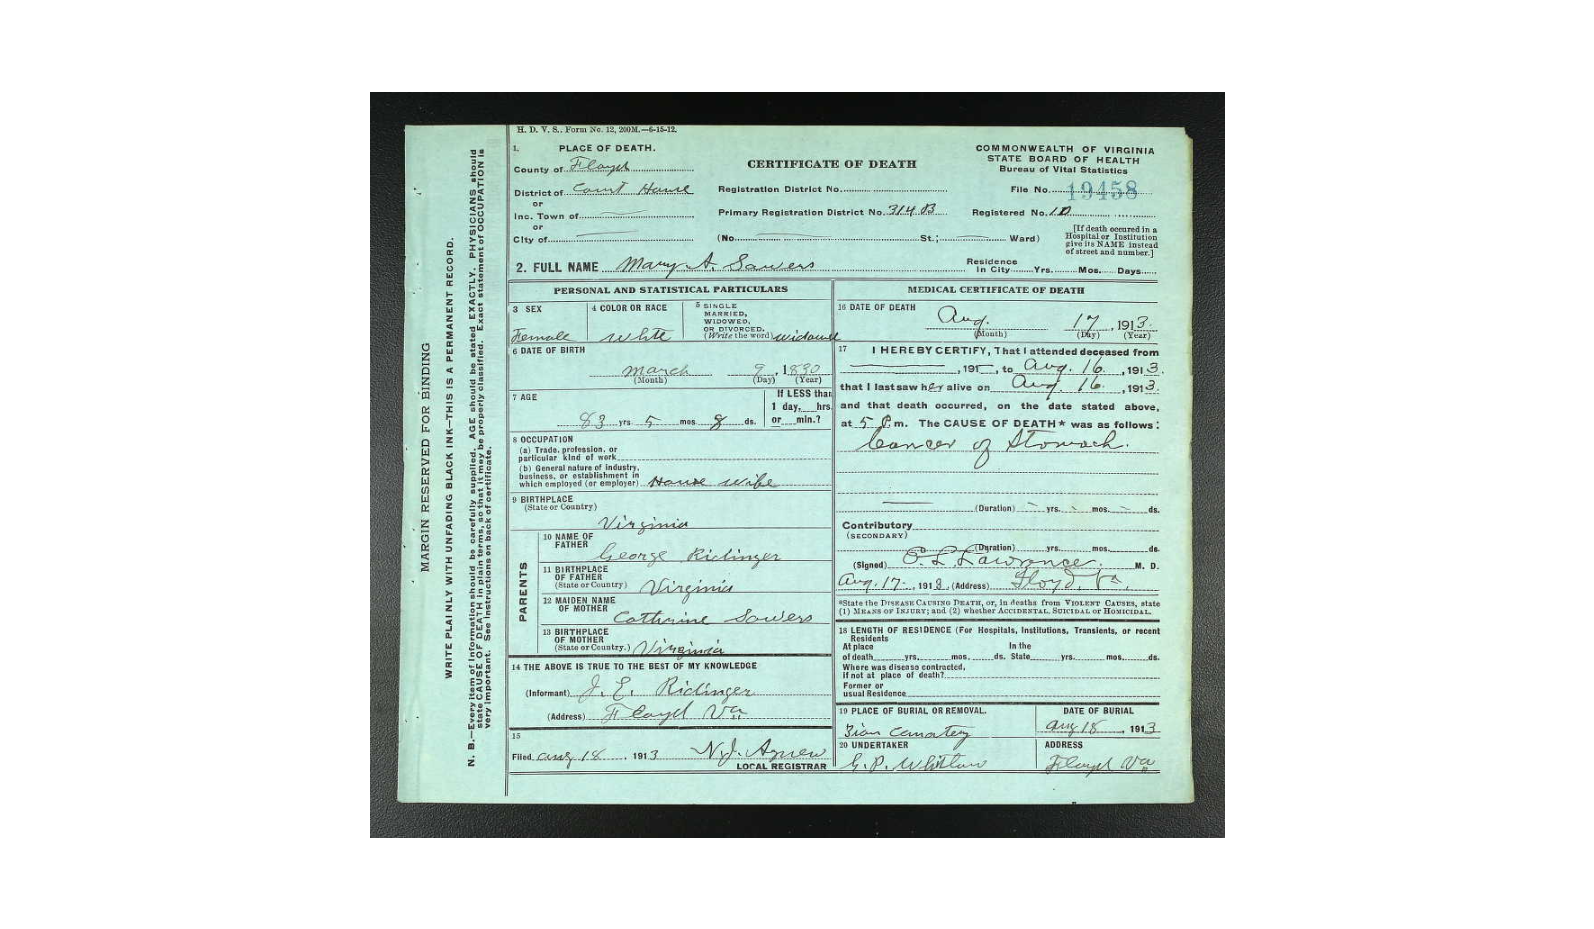 H. D. V. S., Form No. 12, 200M.—6-15-12.
1. PLACE OF DEATH.
County of Floyd
District of Court House
or
Inc. Town of
or
City of
CERTIFICATE OF DEATH
COMMONWEALTH OF VIRGINIA
STATE BOARD OF HEALTH
Bureau of Vital Statistics
Registration District No.
File No. 19458
Primary Registration District No. 314 B
Registered No. 10
(No. St.; Ward)
[If death occured in a
Hospital or Institution
give its NAME instead
of street and number.]
2. FULL NAME Mary A. Sowers
Residence
In City Yrs. Mos. Days
PERSONAL AND STATISTICAL PARTICULARS
3 SEX
Female
4 COLOR OR RACE
White
5 SINGLE
MARRIED,
WIDOWED,
OR DIVORCED.
(Write the word) widowed
6 DATE OF BIRTH
March 9, 1830
(Month) (Day) (Year)
7 AGE
83 yrs 5 mos 8 ds.
If LESS than
1 day, hrs.
or min.?
8 OCCUPATION
(a) Trade, profession, or
particular kind of work
(b) General nature of industry,
business, or establishment in
which employed (or employer) House wife
9 BIRTHPLACE
(State or Country)
Virginia
PARENTS
10 NAME OF
FATHER
George Ridinger
11 BIRTHPLACE
OF FATHER
(State or Country) Virginia
12 MAIDEN NAME
OF MOTHER
Catherine Sowers
13 BIRTHPLACE
OF MOTHER
(State or Country.) Virginia
14 THE ABOVE IS TRUE TO THE BEST OF MY KNOWLEDGE
(Informant) J. E. Ridinger
(Address) Floyd Va
15
Filed Aug 18, 1913 N. J. Agnew
LOCAL REGISTRAR
MEDICAL CERTIFICATE OF DEATH
16 DATE OF DEATH
Aug. 17, 1913.
(Month) (Day) (Year)
17 I HEREBY CERTIFY, That I attended deceased from
, 191 , to Aug. 16, 1913.
that I last saw her alive on Aug. 16, 1913.
and that death occurred, on the date stated above,
at 5 P. m. The CAUSE OF DEATH* was as follows:
Cancer of Stomach.
(Duration) yrs. mos. ds.
Contributory
(SECONDARY)
(Duration) yrs. mos. ds.
(Signed) C. L. Lawrence. M. D.
Aug. 17-, 1913 (Address) Floyd, Va.
*State the DISEASE CAUSING DEATH, or, in deaths from VIOLENT CAUSES, state
(1) MEANS OF INJURY; and (2) whether ACCIDENTAL, SUICIDAL or HOMICIDAL.
18 LENGTH OF RESIDENCE (For Hospitals, Institutions, Transients, or recent
Residents
At place In the
of death yrs. mos. ds. State yrs. mos. ds.
Where was disease contracted,
If not at place of death?
Former or
usual Residence
19 PLACE OF BURIAL OR REMOVAL.
Zion Cematery
DATE OF BURIAL
Aug 18, 1913
20 UNDERTAKER
G. P. Whitlow
ADDRESS
Floyd Va
MARGIN RESERVED FOR BINDING
WRITE PLAINLY WITH UNFADING BLACK INK—THIS IS A PERMANENT RECORD.
N. B.—Every item of information should be carefully supplied. AGE should be stated EXACTLY. PHYSICIANS should
state CAUSE OF DEATH in plain terms, so that it may be properly classified. Exact statement of OCCUPATION is
very important. See instructions on back of certificate.